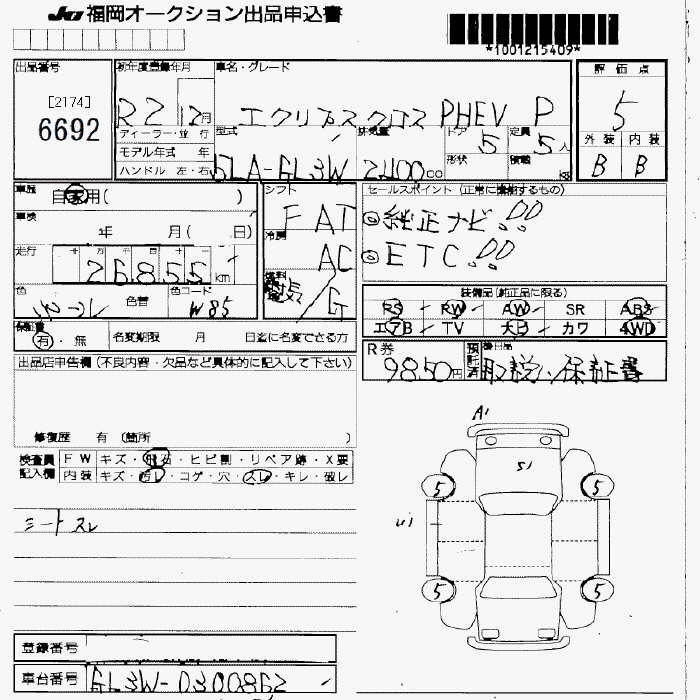 JU 福岡オークション出品申込書
*1001215409*
出品番号 初年度登録年月 車名・グレード 評価点
[2174]
6692
R2 12月 エクリプスクロス PHEV P 5
ディーラー・並行 型式 排気量 ドア 5 定員 5人 外装 内装
モデル年式 年 形状 積載 kg B B
ハンドル 左・右 5LA-GL3W 2400 00
車歴 自家用( ) シフト セールスポイント (正常に機能するもの)
FAT ◎純正ナビ!!
車検 年 月( 日) 冷房 AC ◎ETC!!
走行 十 万 千 百 十 一 燃料
26855 km G
色 色替 色コード W85
装備品(純正品に限る)
PS PW AW SR ABS
エアB TV 大B カワ 4WD
保証書 有・無 名変期限 月 日迄に名変できる方
R券 9850円 預託済 後日品 取説、保証書
出品店申告欄 (不良内容・欠品など具体的に記入して下さい)
修復歴 有 (箇所 )
検査員 FW キズ・飛石・ヒビ割・リペア跡・X要
記入欄 内装 キズ・汚レ・コゲ・穴・スレ・キレ・破レ
シートスレ
A1
S1
5 5
U1
5 5
登録番号
車台番号 GL3W-0300862